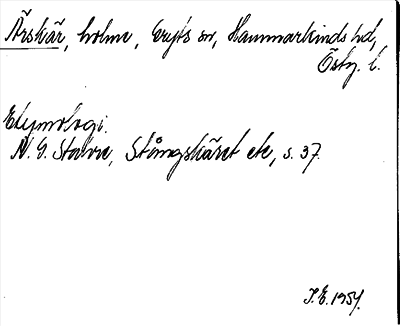 Ärskär, holme, Gryts sn, Hammarkinds hd,
Östg. l.
Etymologi.
N. G. Stahre, Stångskäret etc, s. 37.
I.E. 1957.